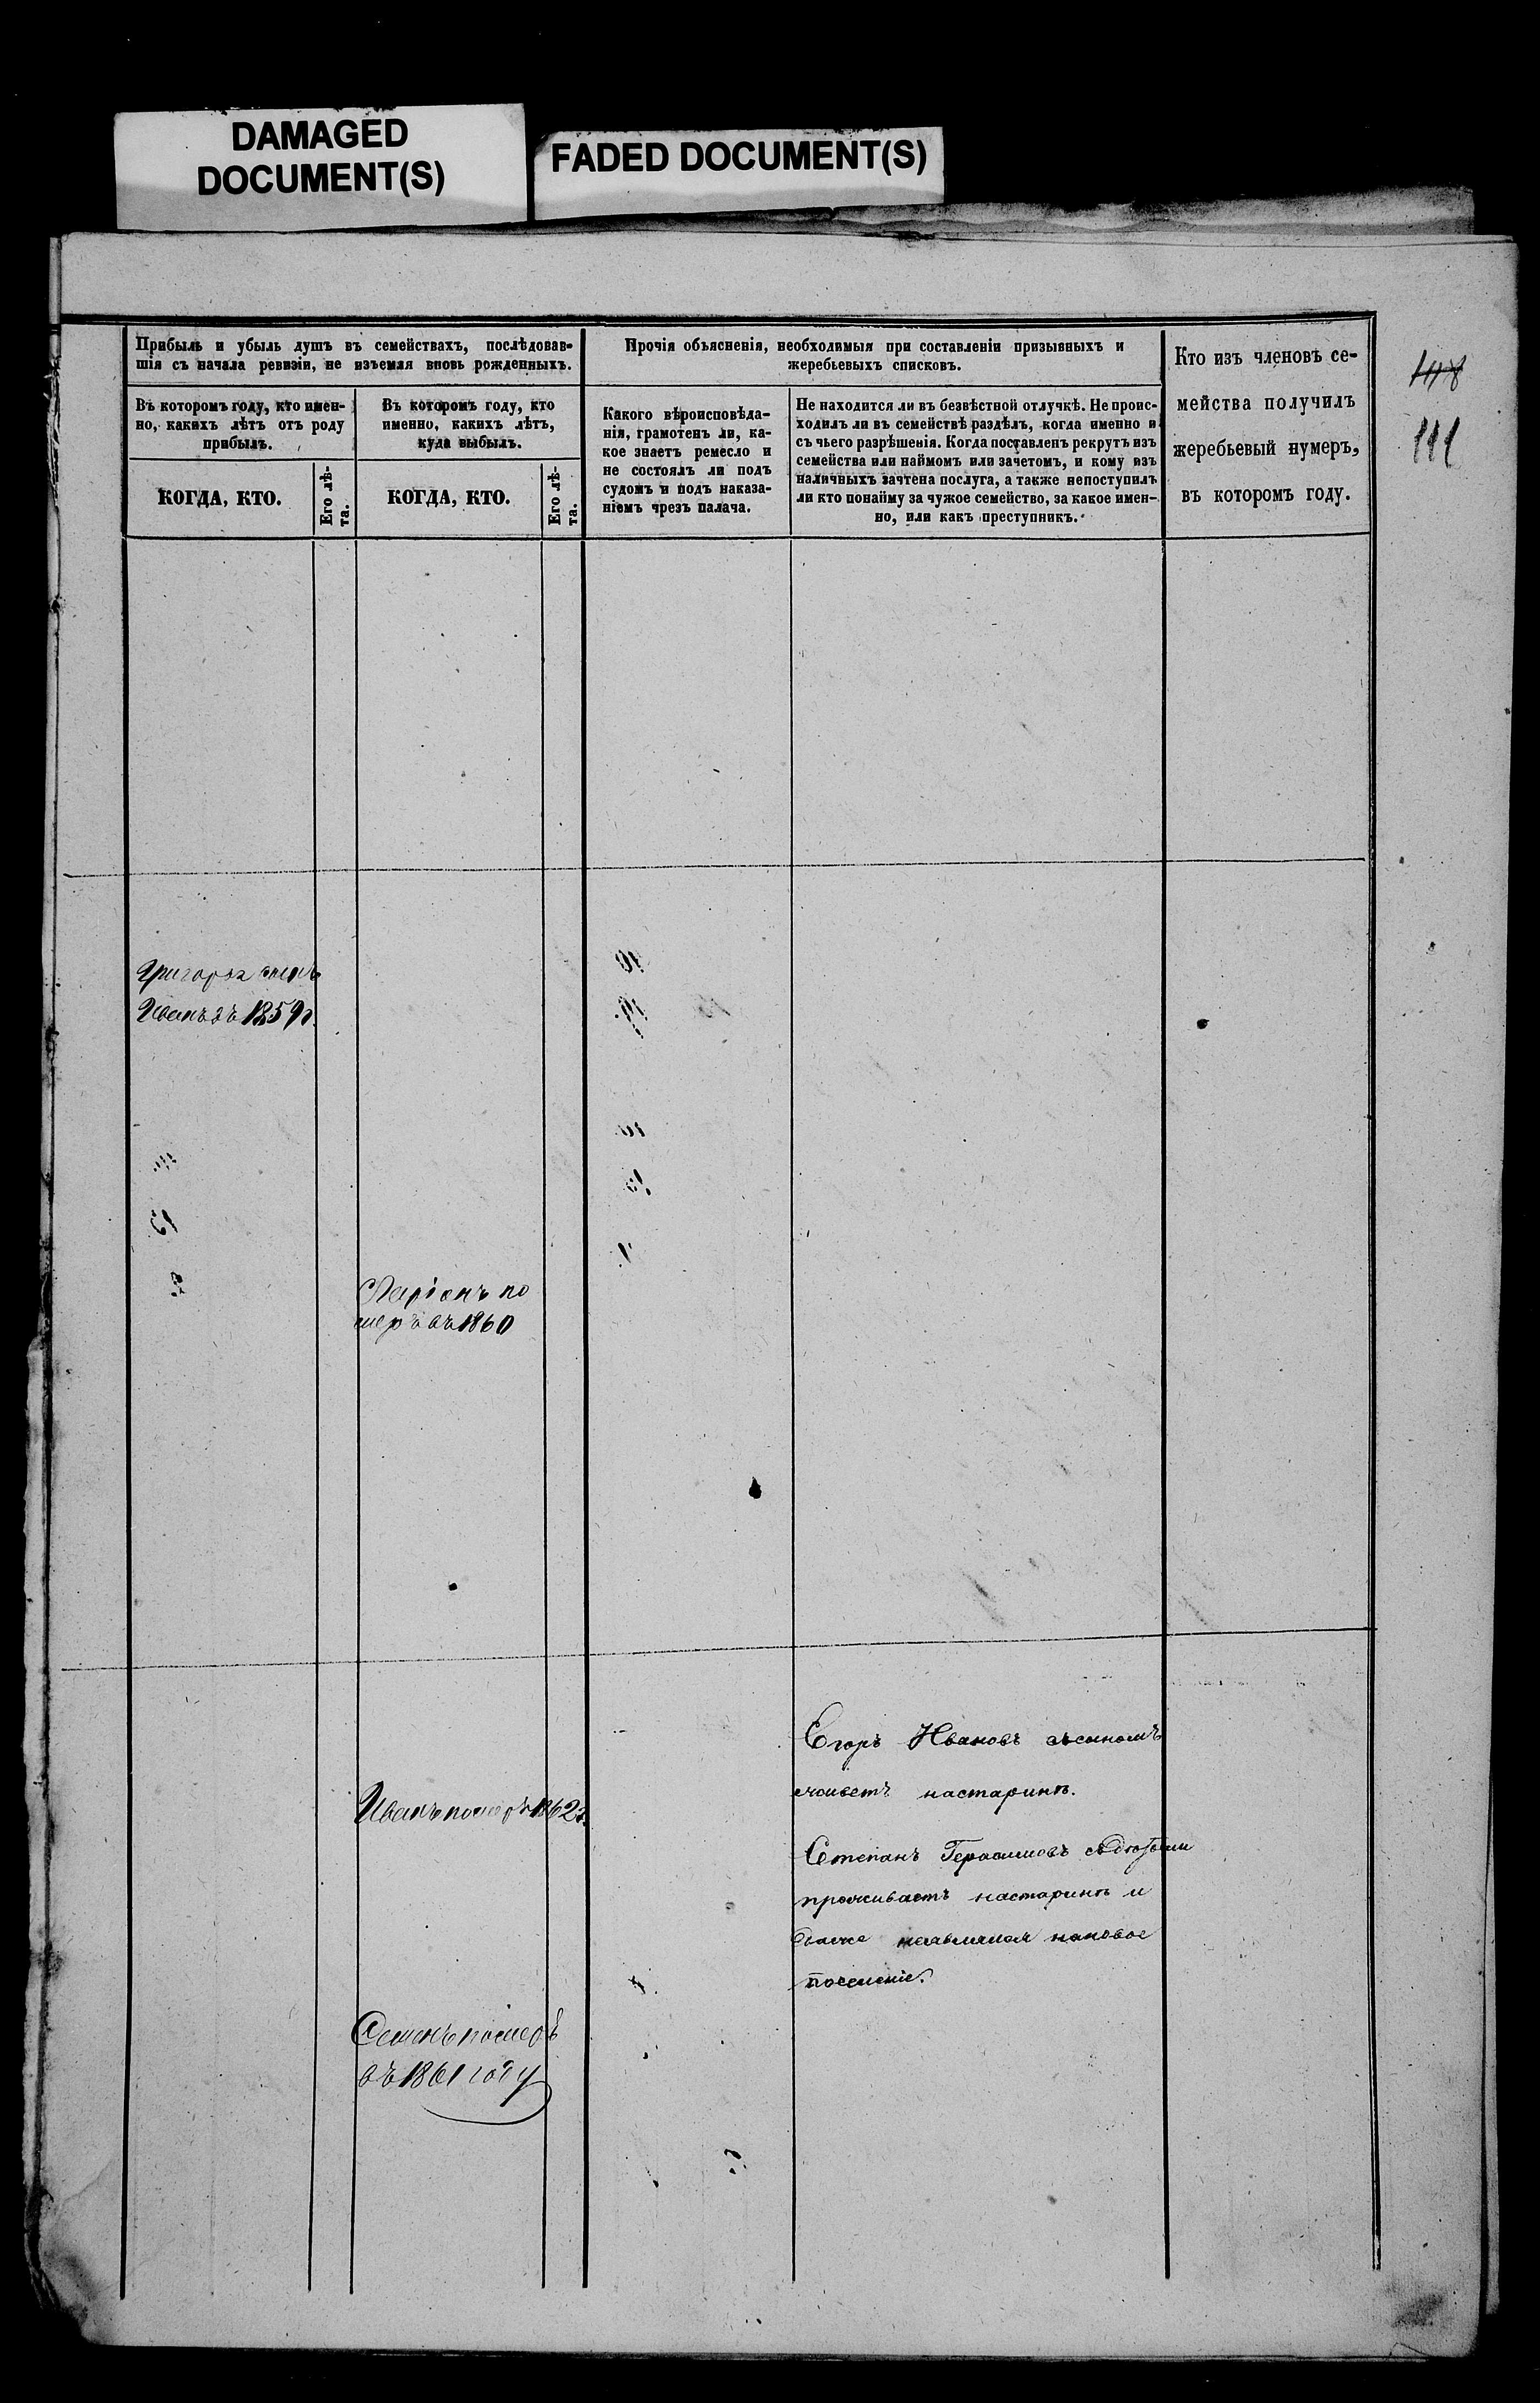 DAMAGED
DOCUMENT(S)
FADED DOCUMENT(S)
Прибыль и убыль душъ въ семействахъ, послѣдовав-
шія съ начала ревизіи, не изъемля вновь рожденныхъ.
Прочія объясненія, необходимыя при составленіи призывныхъ и
жеребьевыхъ списковъ.
Кто изъ членовъ се-
мейства получилъ
жеребьевый нумеръ,
въ которомъ году.
111
Въ которомъ году, кто имен-
но, какихъ лѣтъ отъ роду
прибылъ.
Въ которомъ году, кто
именно, какихъ лѣтъ,
куда выбылъ.
Какого вѣроисповѣда-
нія, грамотенъ ли, ка-
кое знаетъ ремесло и
не состоялъ ли подъ
судомъ и подъ наказа-
ніемъ чрезъ палача.
Не находится ли въ безвѣстной отлучкѣ. Не проис-
ходилъ ли въ семействѣ раздѣлъ, когда именно и
съ чьего разрѣшенія. Когда поставленъ рекрутъ изъ
семейства или наймомъ или зачетомъ, и кому изъ
наличныхъ зачтена послуга, а также непоступилъ
ли кто понайму за чужое семейство, за какое имен-
но, или какъ преступникъ.
КОГДА, КТО.
Его лѣ-
та.
КОГДА, КТО.
Его лѣ-
та.
Григорья сынъ
Иванъ въ 1859г.
Ларіонъ по
меръ въ 1860
Егоръ Ивановъ съсыномъ
живетъ настаринѣ.
Иванъ померъ 1862г.
Степанъ Герасимовъ
проживаетъ настаринѣ и
нановое
поселеніе.
Семенъ померъ
въ 1861 году